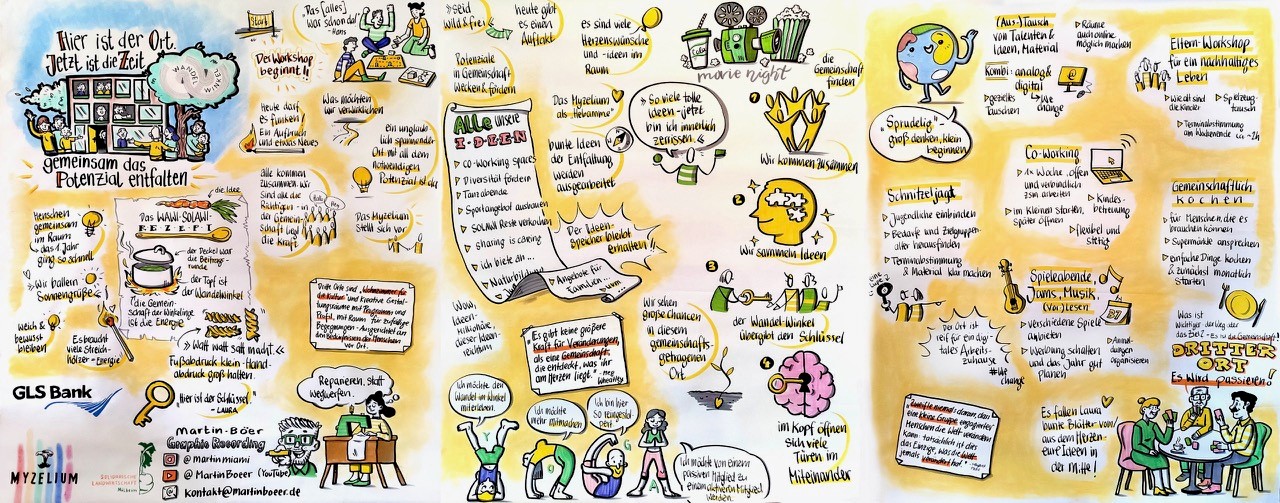 Hier ist der Ort.
Jetzt ist die Zeit.
WANDEL
WINKEL
gemeinsam das
Potenzial entfalten
Start
"Das [alles]
war schon da!"
- Hans
Der Workshop
beginnt!!
Heute darf
es funken!
Ein Aufbruch
und etwas Neues
Was möchten
wir verwirklichen
ein unglaub-
lich spannender
Ort mit all dem
notwendigen
Potenzial ist da
alle kommen
zusammen. Wir
sind alle die
Richtigen -
in der
Gemein-
schaft liegt
die Kraft
Das Myzelium
stellt sich vor
Menschen
gemeinsam
im Raum
→ das 1. Jahr
ging so schnell
Wir ballern
Sonnengrüße
Weich &
bewusst
bleiben
die Idee
Das WAWI-SOLAWI-
REZEPT
der Deckel war
die Beitrags-
runde
der Topf ist
der Wandelwinkel
die Gemein-
schaft der Winkelinge
ist die Energie
Es braucht
viele Streich-
hölzer = Energie
"Watt watt satt macht."
Fußabdruck klein - Hand-
abdruck groß halten.
Dritte Orte sind „Wohnzimmer für
die Kultur" und kreative Gestal-
tungsräume mit Programm und
Profil, mit Raum für zufällige
Begegnungen - Ausgerichtet an
den Bedürfnissen der Menschen
vor Ort.
GLS Bank
"Hier ist der Schlüssel."
- LAURA
Reparieren, statt
Wegwerfen.
MYZELIUM
SOLIDARISCHE
LANDWIRTSCHAFT
Martin-Böer
Graphic Recording
@martinmiami
@MartinBoeer (YouTube)
kontakt@martinboeer.de
»seid
wild & frei«
heute gibt
es einen
Auftakt
es sind viele
Herzenswünsche
und -ideen im
Raum
Potenziale
in Gemeinschaft
Wecken & fördern
Alle unsere
I·D·E·E·N
▷ Co-working spaces
▷ Diversität fördern
▷ Tanzabende
▷ Sportangebot ausbauen
▷ SOLAWI Reste verkochen
▷ sharing is caring
▷ ich biete dir...
▷ Naturbildung
▷ Angebote für
Familien
Das Myzelium
als "Hebamme"
bunte Ideen
der Entfaltung
werden
ausgearbeitet
Der Ideen-
speicher bleibt
erhalten!
»So viele tolle
Ideen - jetzt
bin ich innerlich
zerrissen.«
COLA
movie night
die
Gemeinschaft
finden
1
Wir kommen zusammen
2
Wir sammeln Ideen
3
der Wandel-Winkel
übergibt den Schlüssel
4
im Kopf öffnen
sich viele
Türen im
Miteinander
Wow,
"Es gibt keine größere
Kraft für Veränderungen,
als eine Gemeinschaft,
die entdeckt, was ihr
am Herzen liegt."
- Meg
Wheatley
Wir sehen
große Chancen
in diesem
gemeinschafts-
getragenen
Ort
Ich möchte den
Wandel im Winkel
miterleben.
Ich möchte
mehr mitmachen
Ich bin hier
so reingestol-
pert
Y
O
G
A
Ich möchte von einem
passiven Mitglied zu
einem aktiveren Mitglied
werden.
(Aus-)Tausch
von Talenten &
Ideen, Material
▷ Räume
auch online
möglich machen
Kombi: analog &
digital
▷ gezieltes
Tauschen
"Sprudelig" -
groß denken, klein
beginnen
Eltern-Workshop
für ein nachhaltiges
Leben
▷ Wie alt sind
die Kinder
▷ Spielzeug-
tausch
▷ Terminabstimmung
am Wochenende ca. ~2h
Co-Working
▷ 1x Woche „offen
und verbindlich
zsm arbeiten
▷ im Kleinen starten,
später öffnen
▷ Kindes-
betreuung
▷ flexibel und
stetig
Schnitzeljagd
▷ Jugendliche einbinden
▷ Bedarfe und Zielgruppen-
alter herausfinden
▷ Terminabstimmung
& Material klar machen
Gemeinschaftlich
kochen
▷ für Menschen, die es
brauchen können
▷ Supermärkte ansprechen
▷ einfache Dinge kochen
& zunächst monatlich
starten
Spieleabende,
Jams, Musik,
(Vor-)Lesen
▷ verschiedene Spiele
anbieten
▷ Werbung schalten
und das Jahr gut
planen
▷ Anmel-
dungen
organisieren
Der Ort ist
reif für ein digi-
tales Arbeits-
zuhause
#We
change
Was ist
Wichtiger der Weg oder
das Ziel? - Es ist die Gemeinschaft!
DRITTER
ORT
Es wird passieren!
"Zweifle niemals daran, dass
eine kleine Gruppe engagierter
Menschen die Welt verändern
kann - tatsächlich ist dies
das Einzige, was die Welt
jemals verändert hat."
Es fallen Laura
bunte Blätter von/
aus dem Herzen -
eure Ideen in
der Mitte!